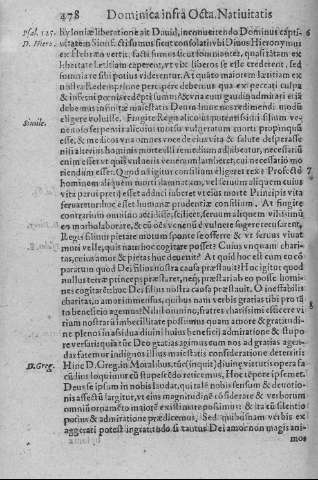 478 Dominica infra Octa. Natiuitatis
Psal. 125. Bylonicæ liberatione ait Dauid, in conuertendo Dominus capti- 6
D. Hiero. uitatem Sion, &c. sumus sicut consolati vbi Diuus Hieronymus
ex Hebræa vertit, facti sumus sicut somniantes, quasi tam ex
libertate Lætitiam caperent, vt vix liberos se esse crederent, sed
somniare sibi potius viderentur. At quāto maiorem lætitiam ex
nostra Redemptione percipere debemus qua ex peccati culpa
& inferni pœnis redēpti sumus & vita cum gaudio admirari etiā
debemus infinitæ maiestatis Deum hunc nos redimendi modū
Simile. eligere voluisse. Fingite Regni alicuius potentissimi filium ve-
nenoso serpentis alicuius morsu vulneratum morti propinquū
esse, & medicos vna omnes voce de eius vita & salute desperasse
nisi alterius hominis morte illi remedium adhiberetur, necessariū
enim esset vt quis vulneris venenum lamberet, cui necessario mo
riendum esset. Quod igitur consilium eligeret rex? Profectò 7
hominem aliquem morti damnatum, vel seruum aliquem cuius
vita parui pretij esset adduci iuberet vt eius morte Principis vita
seruaretur hoc esset humanæ prudentiæ consilium. At fingite
contrarium omnino accidisse, scilicet, seruum aliquem vilissimū
eo morbo laborare, & cū oēs vt venenū è vulnere sugere recusarent,
Regis filium pietate motum sponte se offerre & vt seruus viuat
mori velle, quis nam hoc cogitare posset? Cuius vnquam chari-
tas, cuius amor & pietas huc deuenit? At quid hoc est cum eo cō
paratum quod Dei filius nostra causa præstitit? Hoc igitur quod
nullus terræ princeps præstaret, ne ̄q; præstari ab eo posse homi-
nes cogitarēt huc Dei filius nostra causa præstitit. O ineffabilis
charitas, o amor immensus, quibus nam verbis gratias tibi pro tā
to beneficio agemus? Nihil omnino, fratres charissimi efficere vi 8
tiam nostra imbecillitate possumus quam amore & gratitudi-
ne plenos in assidua diuini huius beneficij admiratione & stupo
re versari quia tūc Deo gratias agimus cum nos ad gratias agen-
das fatemur indignos illius maiestatis consideratione deterriti:
D. Greg. Hinc D. Greg. in Moralibus, tūc (inquit) diuinæ virtutis opera fa
cūdius loquimur cū stupescēdo reticemus, Hoc tēpore ipsemet.
Deus se ipsum in nobis laudat, qui talē nobis sensum & deuotio-
nis affectū largitur, vt eius magnitudinē cōsiderare & verborum
omniū ornamēto maiorē existimare possimus & ita cū silentio
potius & admiratione prædicemus. Sed quibusnam verbis ex
aggerari potest ingratitudo si tantus Dei amor non magis ani
mos